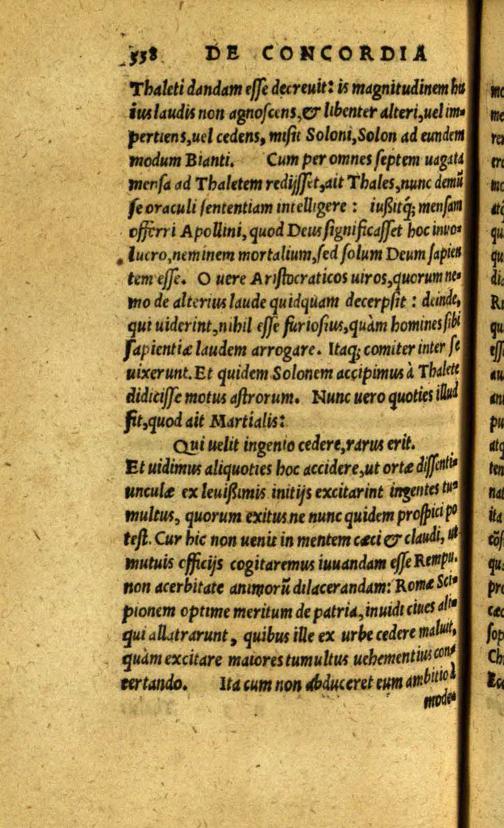 558 DE CONCORDIA
Thaleti dandam esse decreuit: is magnitudinem hu
ius laudis non agnoscens, & libenter alteri, uel im-
pertiens, uel cedens, misit Soloni, Solon ad eundem
modum Bianti. Cum per omnes septem uagata
mensa ad Thaletem redijsset, ait Thales, nunc demũ
se oraculi sententiam intelligere: iußitq; mensam
offerri Apollini, quod Deus significasset hoc inuo-
lucro, neminem mortalium, sed solum Deum sapien
tem esse. O uere Aristocraticos uiros, quorum ne-
mo de alterius laude quidquam decerpsit: deinde,
qui uiderint, nihil esse furiosius, quàm homines sibi
sapientiæ laudem arrogare. Itaq; comiter inter se
uixerunt. Et quidem Solonem accipimus à Thalete
didicisse motus astrorum. Nunc uero quoties illud
fit, quod ait Martialis:
Qui uelit ingenio cedere, rarus erit.
Et uidimus aliquoties hoc accidere, ut ortæ dissenti-
unculæ ex leuißimis initijs excitarint ingentes tu-
multus, quorum exitus ne nunc quidem prospici po
test. Cur hic non uenit in mentem cæci & claudi, ut
mutuis officijs cogitaremus iuuandam esse Rempu.
non acerbitate animorũ dilacerandam: Romæ Sci-
pionem optime meritum de patria, inuidi ciues ali-
qui allatrarunt, quibus ille ex urbe cedere maluit,
quàm excitare maiores tumultus uehementius con-
certando. Ita cum non abduceret eum ambitio à
mode-